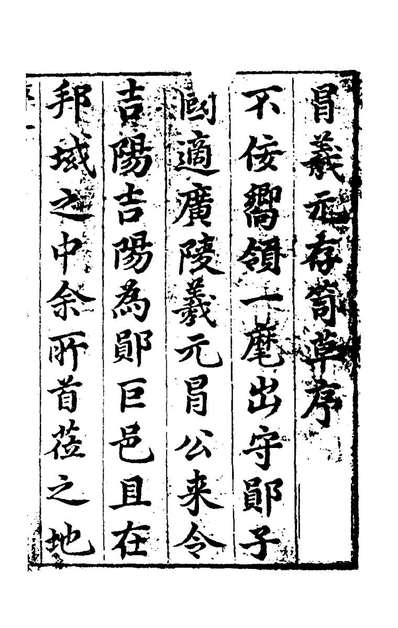 冒羲元存笥草序
不佞嚮領一麾出守鄖子
國適廣陵羲元冒公来令
吉陽吉陽為鄖巨邑且在
邦域之中余所首蒞之地